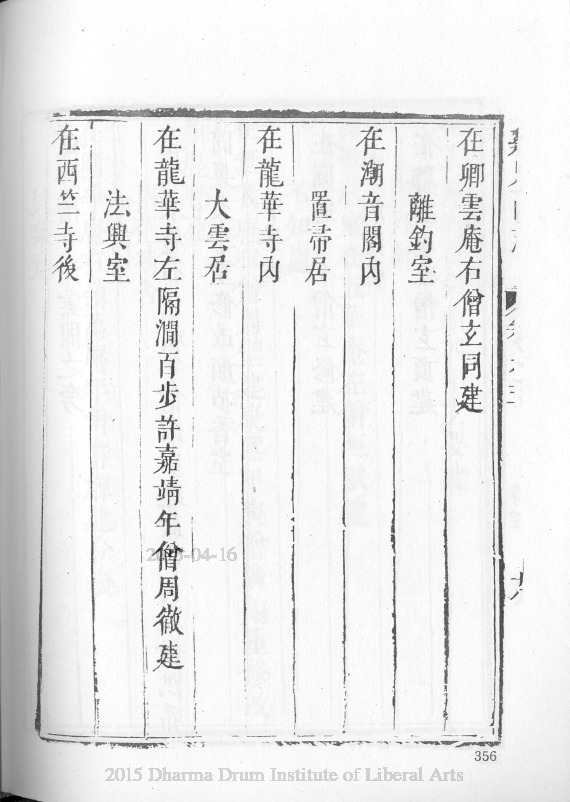 在卿雲庵右僧玄同建
離釣室
在潮音閣內
置帚居
在龍華寺內
大雲居
在龍華寺左隔澗百步許嘉靖年僧周徹建
法興室
在西竺寺後
356
2015 Dharma Drum Institute of Liberal Arts